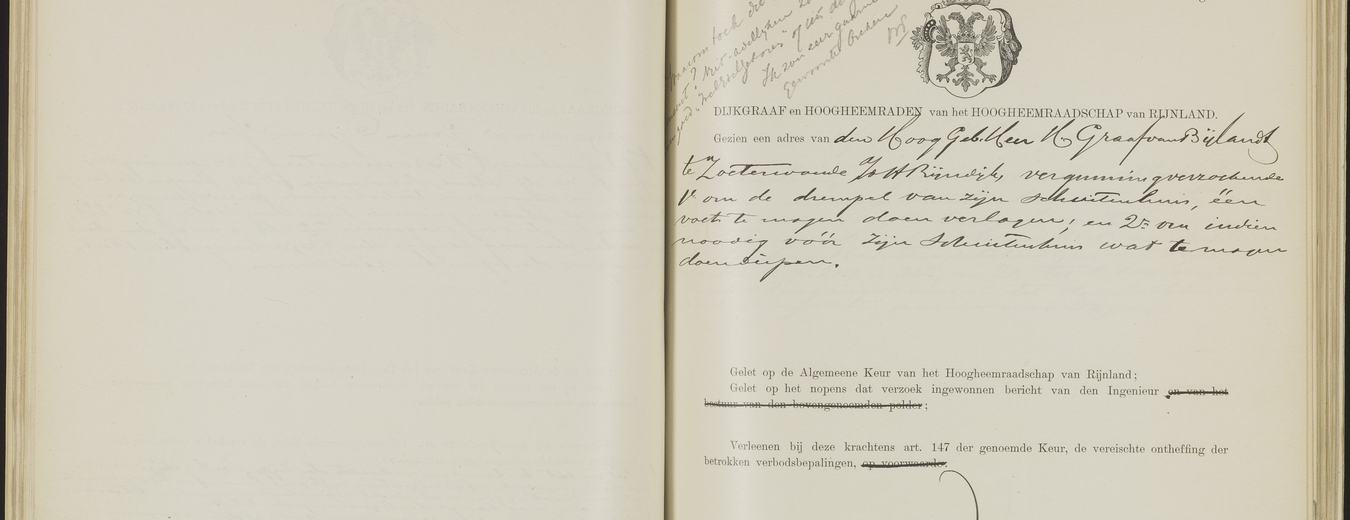 Waarom toch die
DIJKGRAAF en HOOGHEEMRADEN van het HOOGHEEMRAADSCHAP van RIJNLAND.
Gezien een adres van den Hoog Geb. Heer Graaf van Bijlandt
te Zoeterwoude Rijndijk, vergunning verzoekende
1º om de drempel van zijn schuitenhuis, één
voet te mogen doen verlagen; en 2º om indien
noodig vóór zijn Schuitenhuis wat te mogen
doen diepen.
Gelet op de Algemeene Keur van het Hoogheemraadschap van Rijnland;
Gelet op het nopens dat verzoek ingewonnen bericht van den Ingenieur en van het
bestuur van den bovengenoemden polder;
Verleenen bij deze krachtens art. 147 der genoemde Keur, de vereischte ontheffing der
betrokken verbodsbepalingen, op voorwaarde;